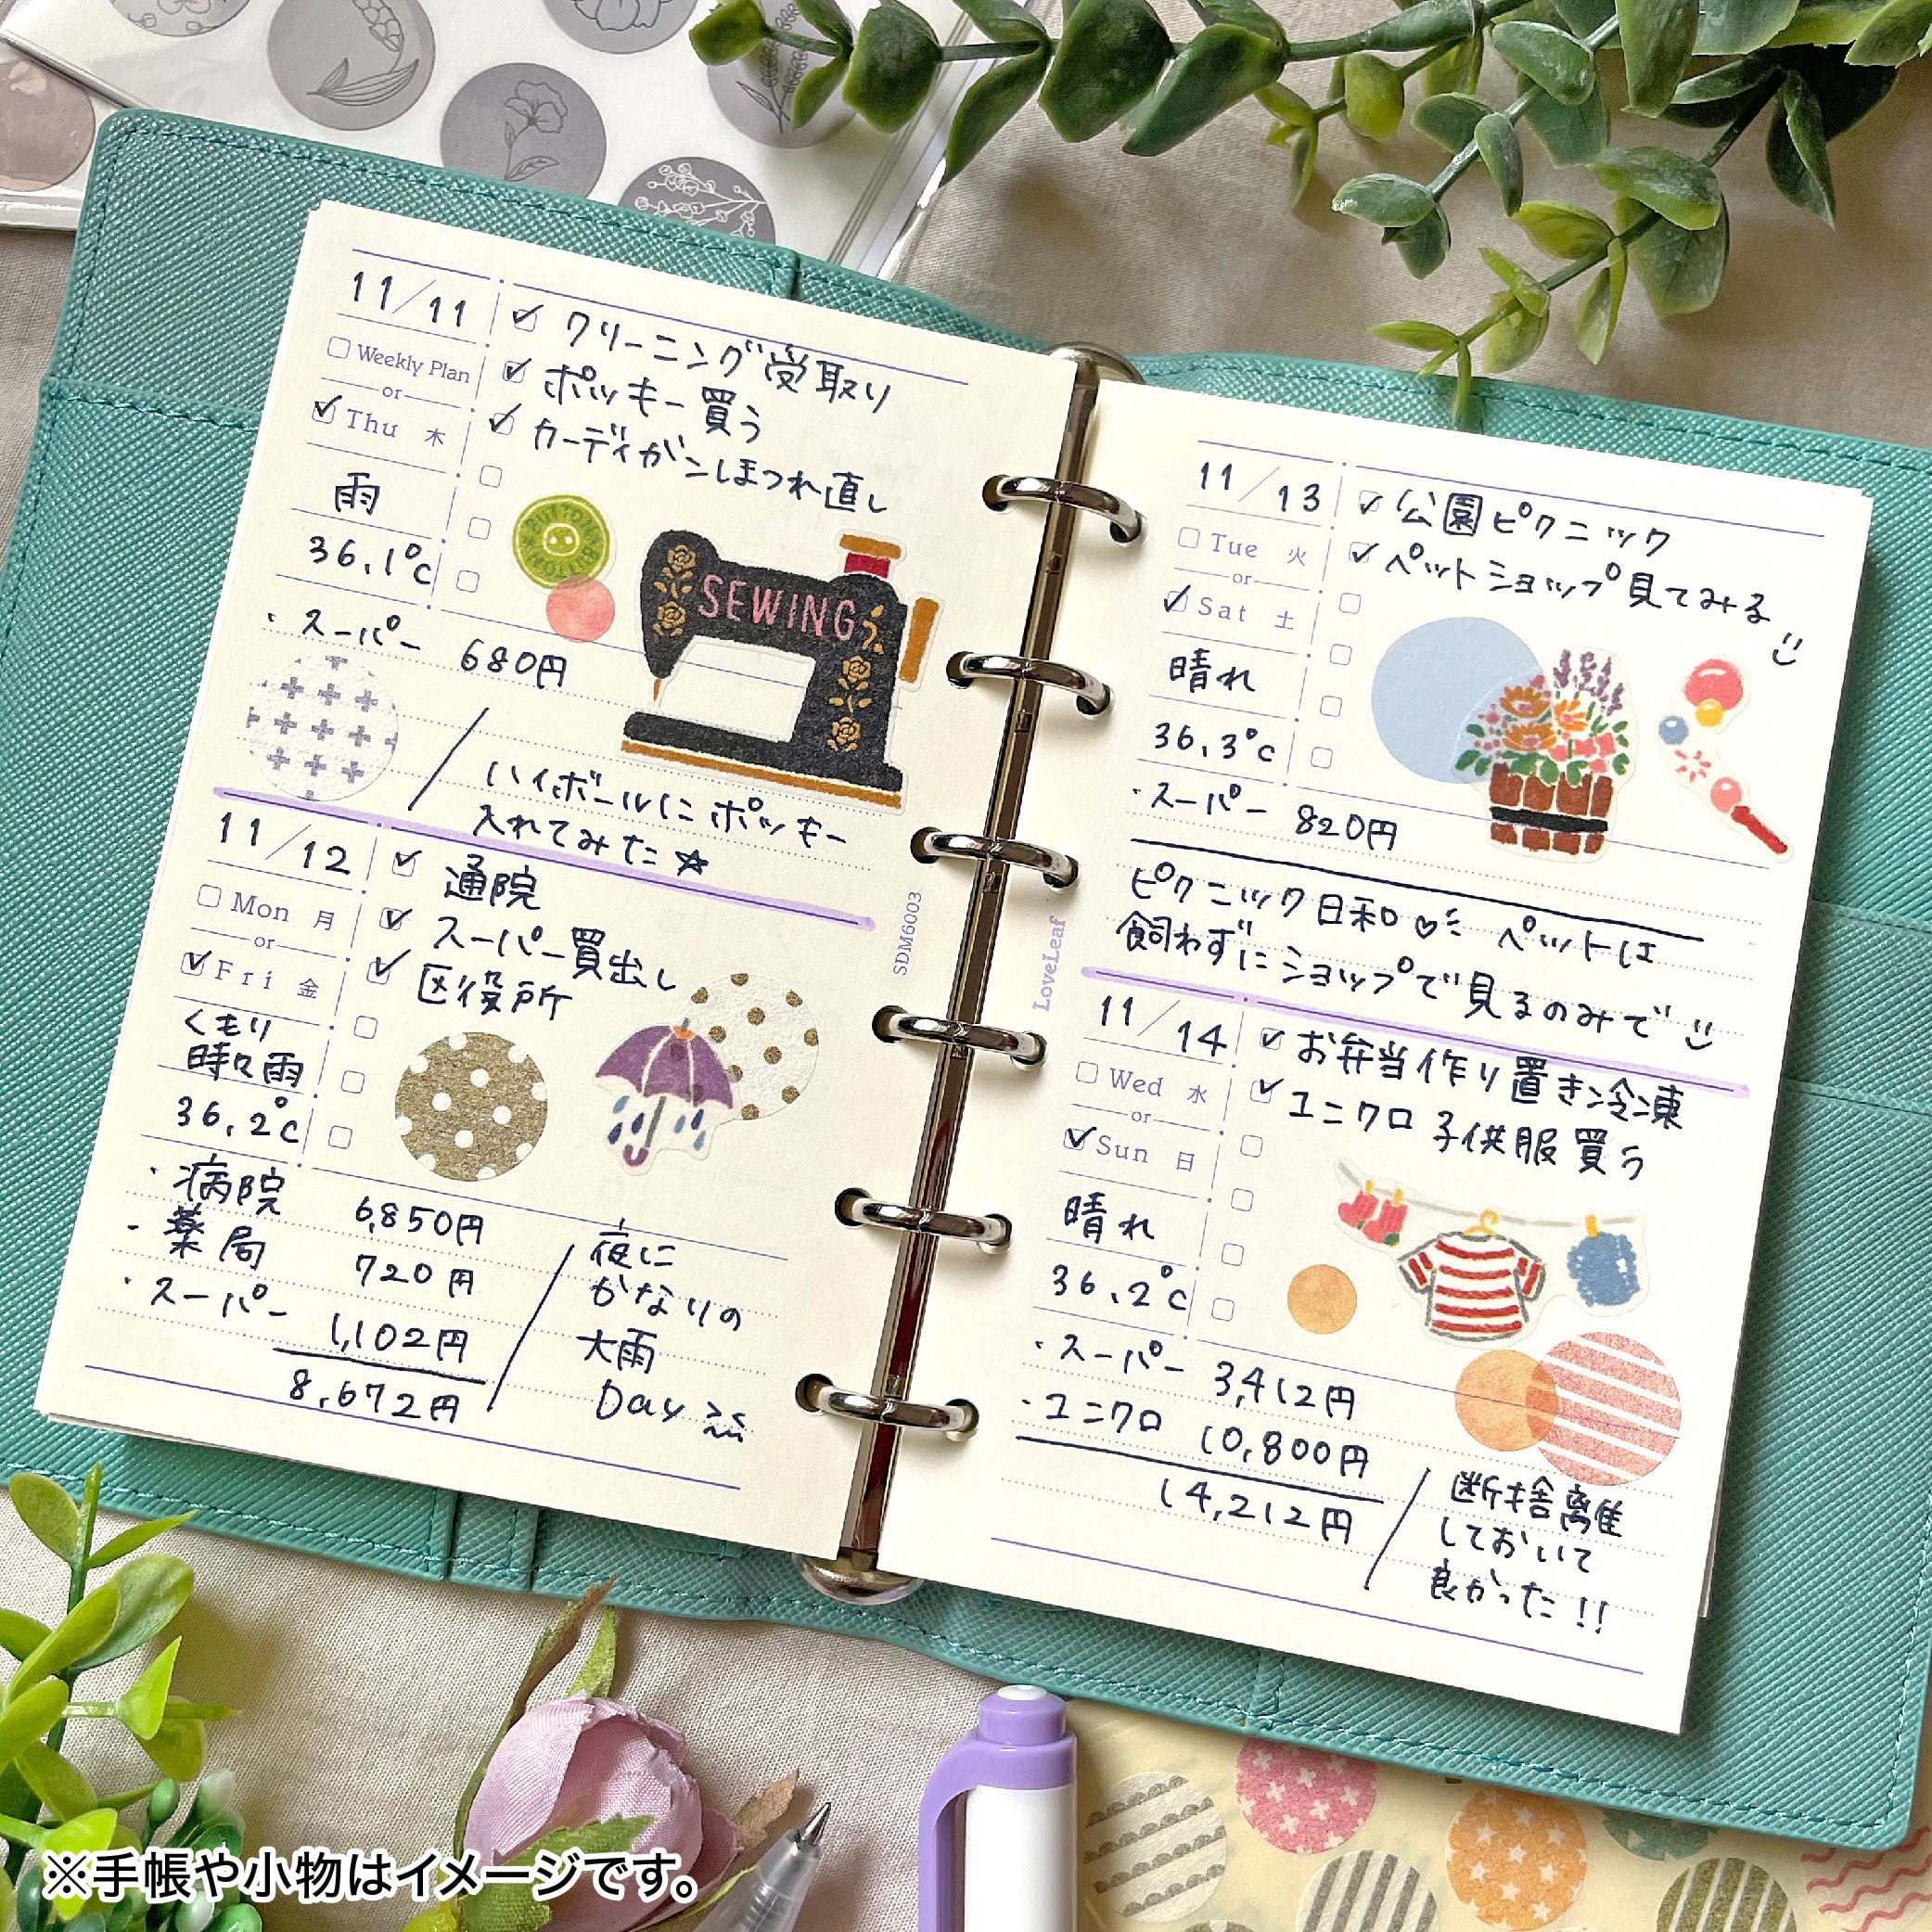 11/11
クリーニング受取り
Weekly Plan
ポッキー買う
or
Thu 木
カーディガンほつれ直し
雨
36.1℃
BUTTON
SEWING
・スーパー 680円
ハイボールにポッキー
入れてみた☆
11/12
通院
Mon 月
スーパー買出し
or
Fri 金
区役所
くもり
時々雨
36.2℃
・病院 6,850円
・薬局 720円
・スーパー 1,102円
8,672円
夜に
かなりの
大雨
Day
SDM6003
LoveLeaf
11/13
公園ピクニック
Tue 火
ペットショップ見てみる
or
Sat 土
晴れ
36.3℃
・スーパー 820円
ピクニック日和♡ ペットは
飼わずにショップで見るのみで
11/14
お弁当作り置き冷凍
Wed 水
ユニクロ子供服買う
or
Sun 日
晴れ
36.2℃
・スーパー 3,412円
・ユニクロ 10,800円
14,212円
断捨離
しておいて
良かった!!
※手帳や小物はイメージです。